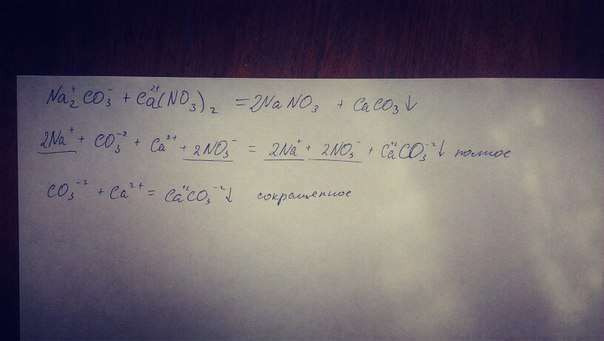 Na₂⁺CO₃⁻ + Ca²⁺(NO₃)₂ = 2NaNO₃ + CaCO₃↓
2Na⁺ + CO₃⁻² + Ca²⁺ + 2NO₃⁻ = 2Na⁺ + 2NO₃⁻ + Ca⁺²CO₃⁻²↓ полное
CO₃⁻² + Ca²⁺ = Ca⁺²CO₃⁻²↓ сокращенное